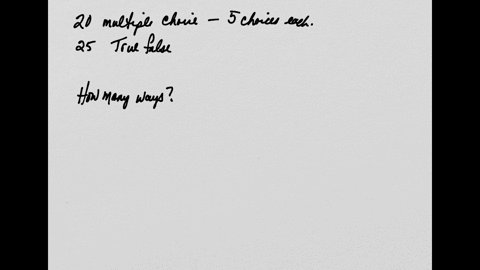 20 multiple choice – 5 choices each.
25 True false
How many ways?